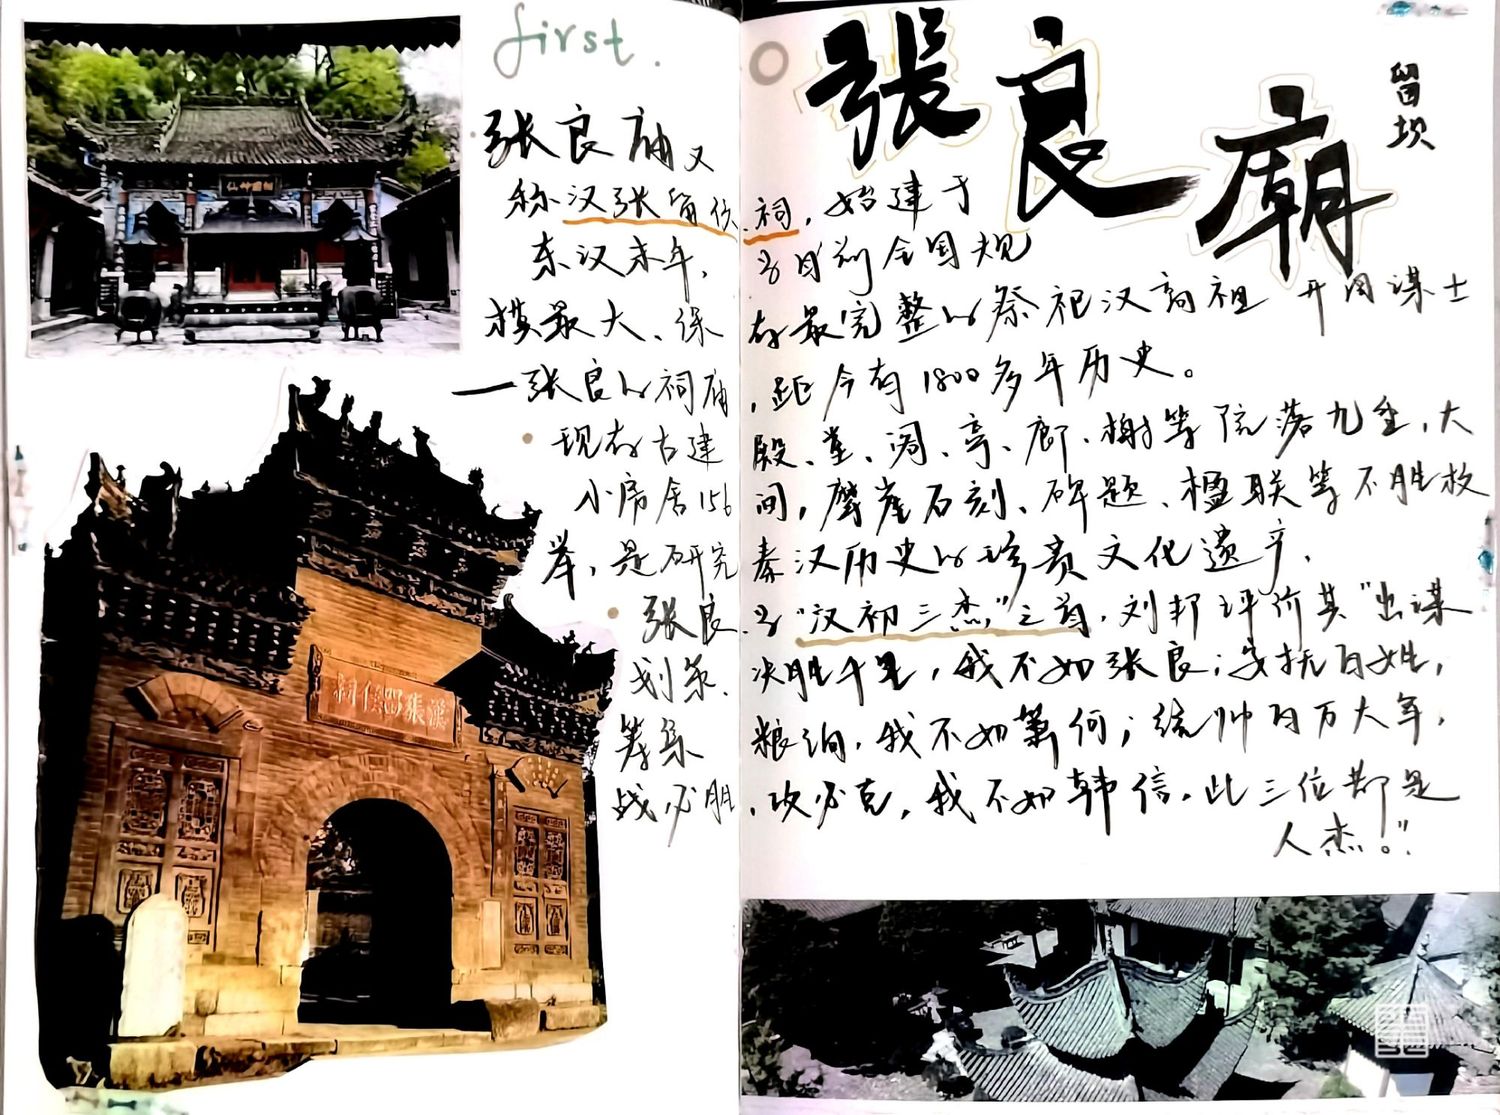 first.
張良廟
留坝
张良庙又
称汉张留侯祠，始建于
东汉末年，为目前全国规
模最大、保存最完整的祭祀汉高祖开国谋士
—张良的祠庙，距今有1800多年历史。
现存古建殿、堂、阁、亭、廊、榭等院落九座，大
小房舍156间，摩崖石刻、碑题、楹联等不胜枚
举，是研究秦汉历史的珍贵文化遗产。
张良为“汉初三杰”之首，刘邦评价其“出谋
划策、决胜千里，我不如张良；安抚百姓，
筹集粮饷，我不如萧何；统帅百万大军，
战必胜，攻必克，我不如韩信，此三位都是
人杰。”
相國神仙
漢張留侯祠